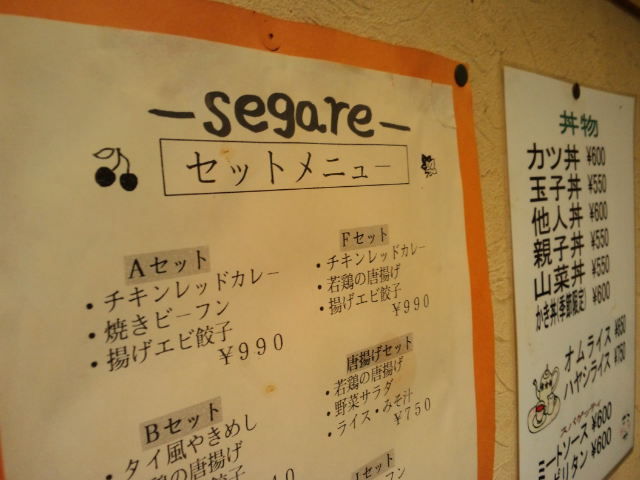 ーsegareー
セットメニュー
Aセット
・チキンレッドカレー
・焼きビーフン
・揚げエビ餃子
¥990
Bセット
・タイ風やきめし
鶏の唐揚げ
餃子
Fセット
・チキンレッドカレー
・若鶏の唐揚げ
・揚げエビ餃子
¥990
唐揚げセット
・若鶏の唐揚げ
・野菜サラダ
・ライス・みそ汁
¥750
セット
フン
丼物
カツ丼 ¥600
玉子丼 ¥550
他人丼 ¥600
親子丼 ¥550
山菜丼 ¥550
かき丼(季節限定) ¥600
オムライス ¥650
ハヤシライス ¥750
スパゲッティ
ミートソース ¥600
ポリタン ¥600